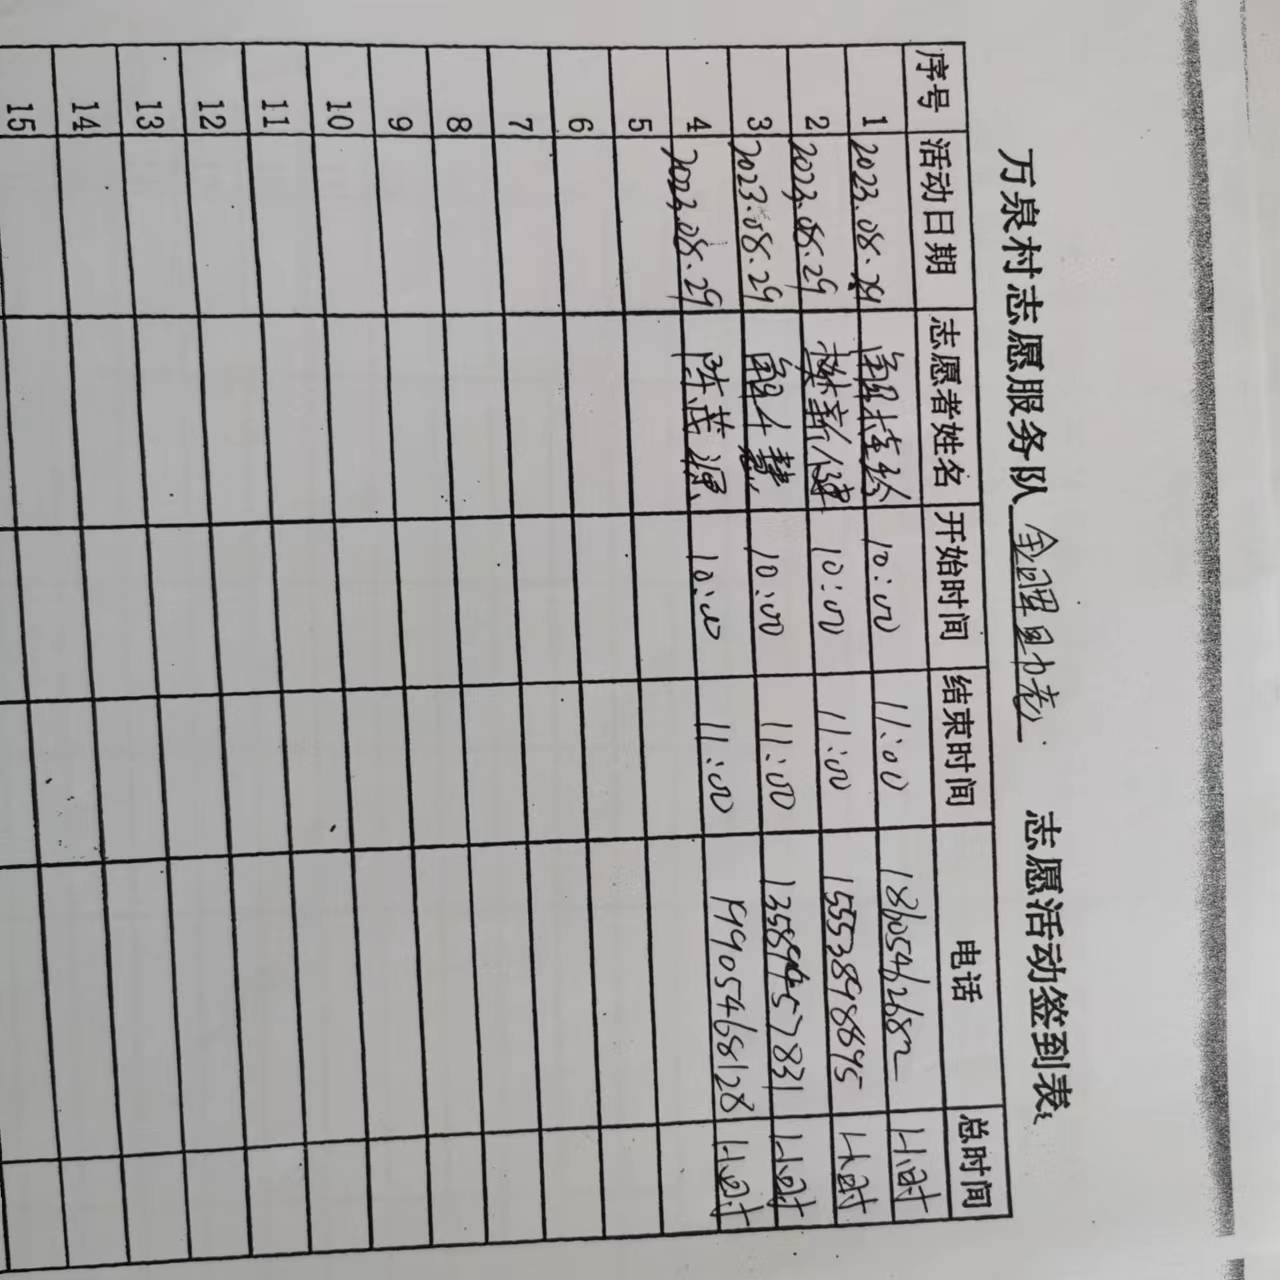 万泉村志愿服务队 金晖助老 志愿活动签到表
序号 活动日期 志愿者姓名 开始时间 结束时间 电话 总时间
1 2023.08.29 10:00 11:00 18605462682 1小时
2 2023.08.29 10:00 11:00 15553898895 1小时
3 2023.08.29 10:00 11:00 1小时
4 2023.08.29 陈茂源 10:00 11:00 19905468128 1小时
5
6
7
8
9
10
11
12
13
14
15